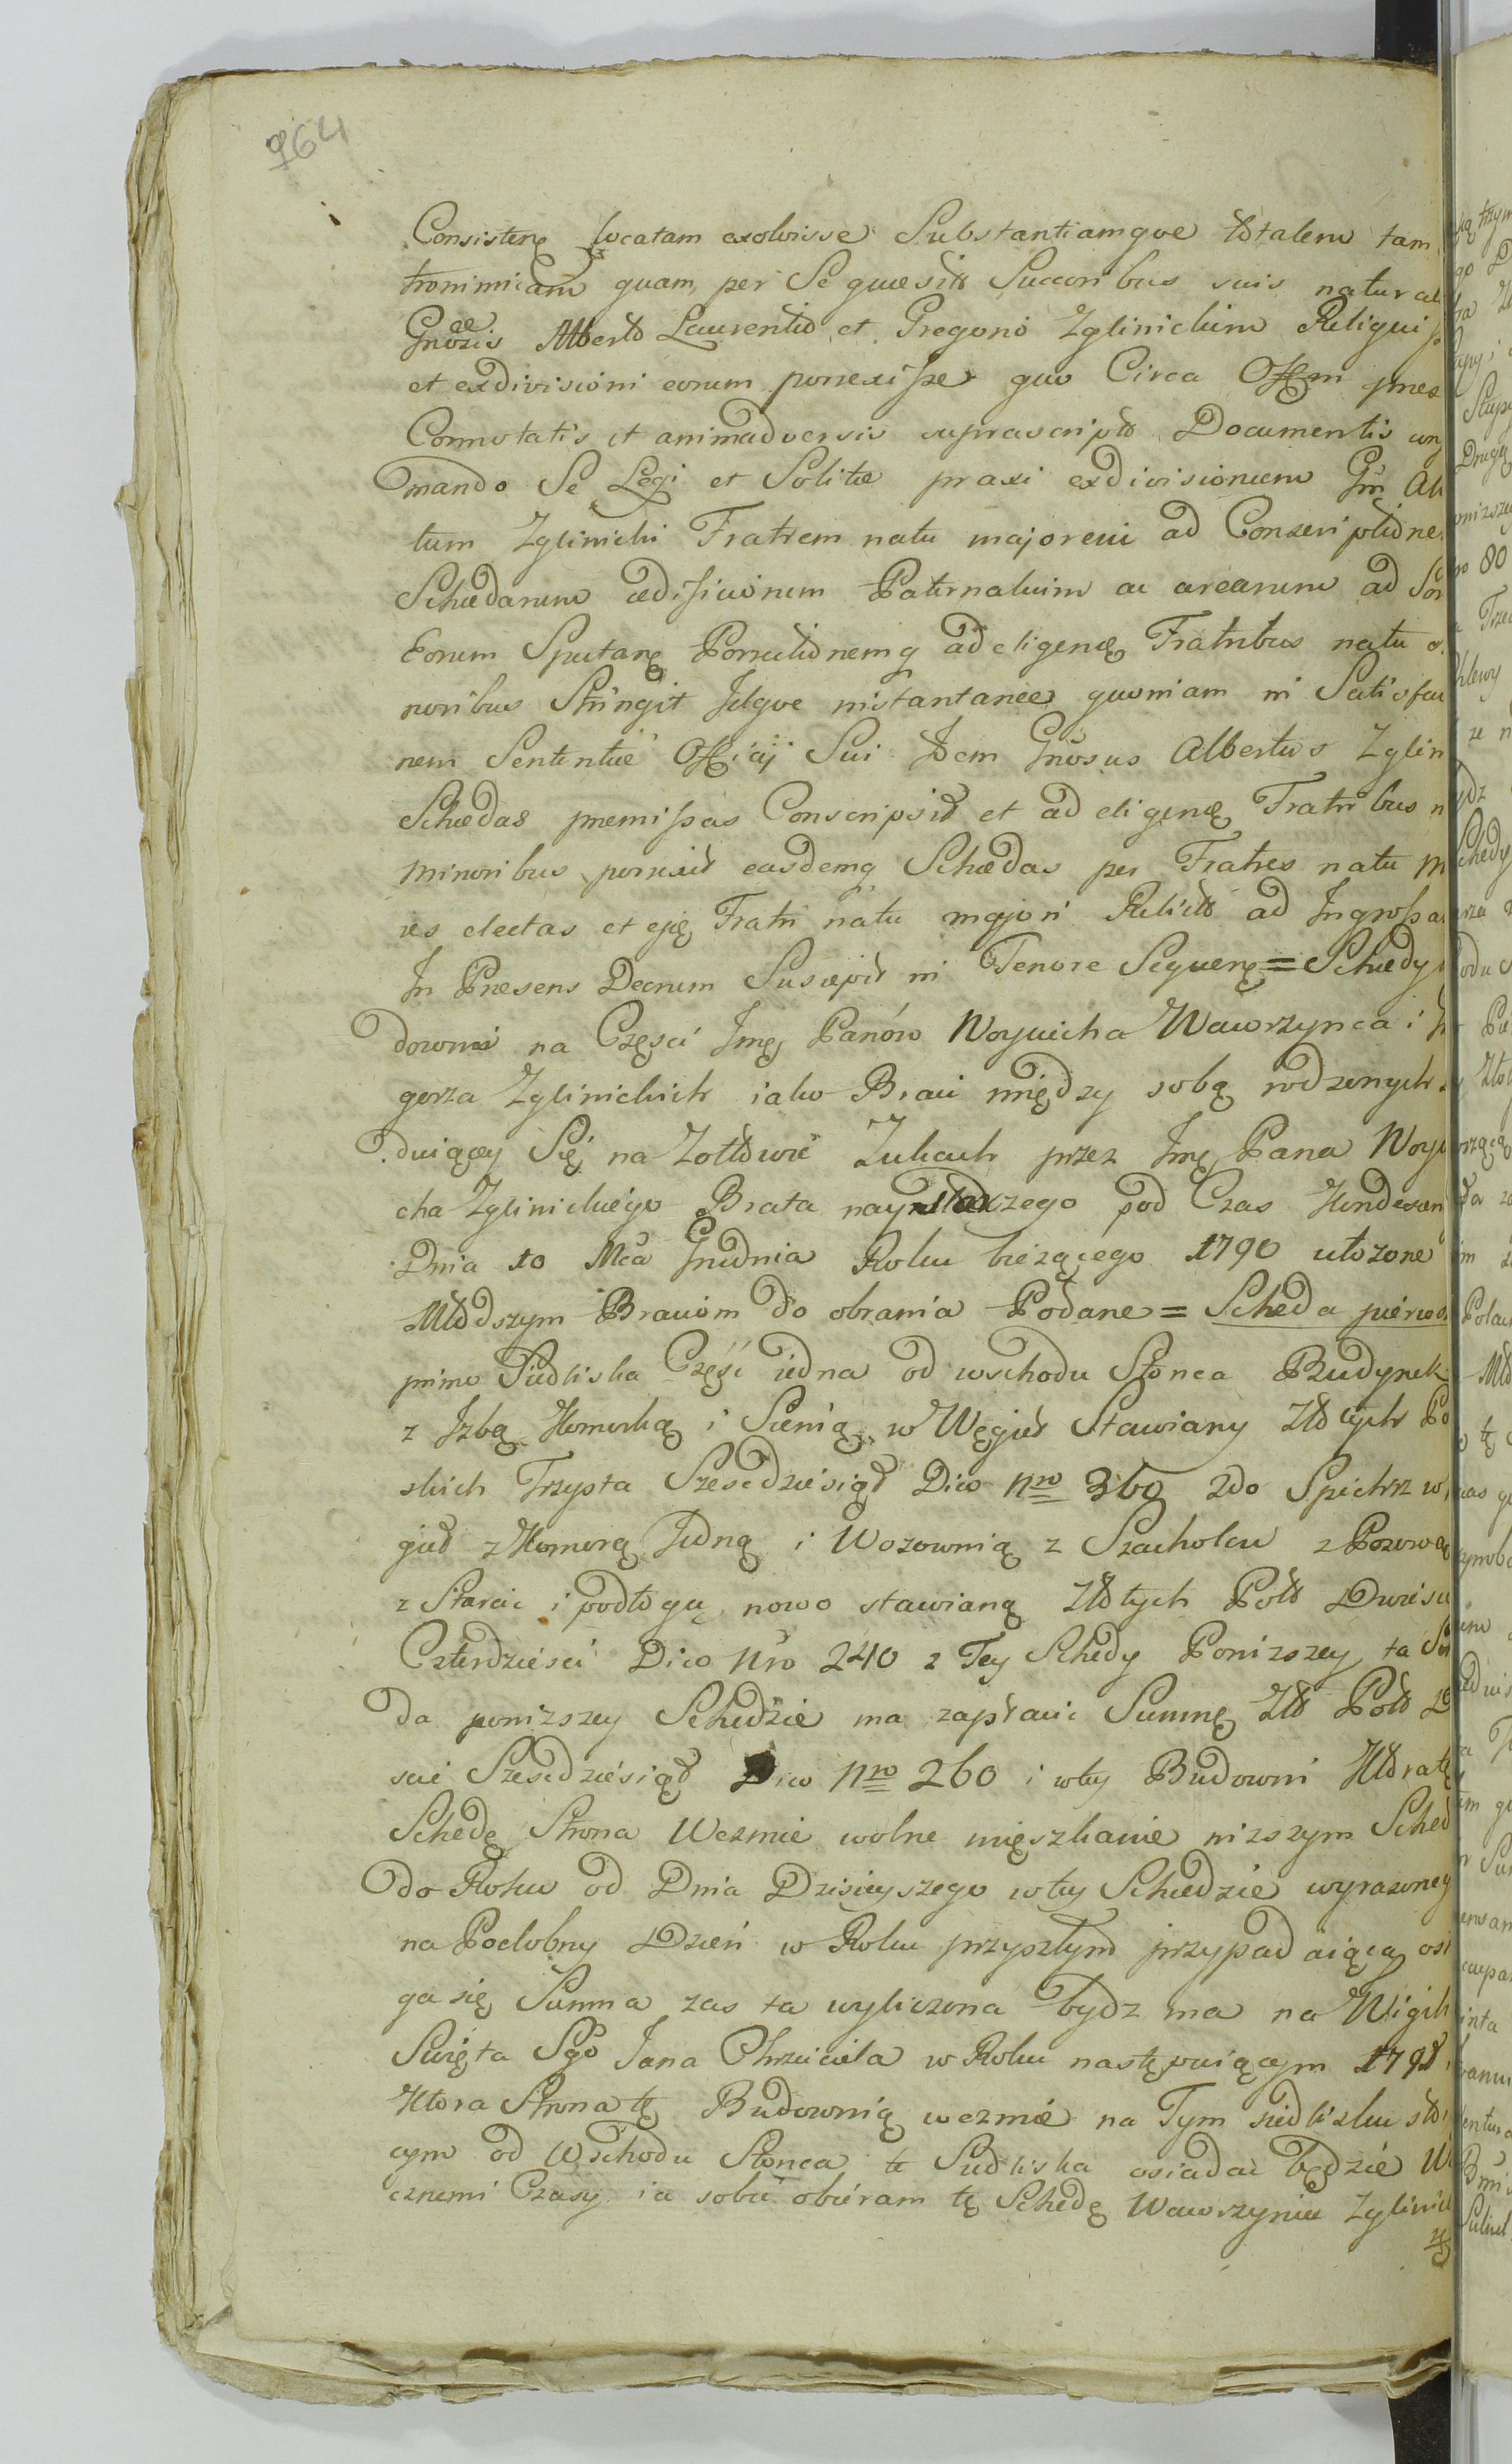 964
Consistenę locatam exolvisse Substantiamqve totalem tam
tronimicam quam per Se quæsit Succoribus suis natural
Gnosis Alberto Laurentio et Gregorio Zglinickim Reliqui
et exdivisioni eorum porrexisse quo Circa Offm præs
Connotatis et animadversis suprascripto Documentis con
mando Se Legi et Solitæ praxi exdivisionem Gn Al
tum Zglinicki Fratrem natu majorem ad Conscriptione
Schedarum ædificiorum Paternalium ac arearum ad Sor
Eorum Sputanę Porrectionemq ad eligenę Fratribus natu
noribus Stringit Idqve instantanee quoniam in Satisfac
nem Sententiæ Officij Sui Idem Gnosus Albertus Zglin
Schedas præmissas Conscripsit et ad eligenę Fratribus n
minoribus porrexit easdemq Schedas per Fratres natu m
res electas et eję Fratri natu majori Relicto ad Ingrossa
In Præsens Decrum Suscepit in Tenore Sequenę = Schedy
downi na Częsci Jmę Panów Woyciecha Wawrzynca i
gorza Zglinickich iako Braci między sobą rodzonych
duiącey Się na Zottowie Zukach przez Jmę Pana Woy
cha Zglinickiego Brata naystarszego pod Czas Kondesen
Dnia 10 Mca Grudnia Roku bieżącego 1790 ułozone
Młodszym Braciom do obrania Podane = Scheda pierws
primo Siedliska Część iedna od wschodu Słonca Budynek
z Jzbą Komorką i Sienią w Węgieł Stawiany Złotych Po
skich Trzysta Szescdziesiąt Dico Nro 360 2do Spichrz w
gieł z Komorą Jedną i Wozownią z Szacholcu z Pozową
z Starcic i podłogą nowo stawianą Złotych Pols Dwiescie
Czterdziesci Dico Nro 240 z Tey Schedy Ponizszey ta Sch
da ponizszey Schedzie ma zapłacic Summę Zło Pols D
scie Szescdziesiąt Dico Nro 260 i wtey Budowni Ktora tę
Schedę Strona Wezmie wolne mięszkanie nizszym Sched
do Roku od Dnia Dzisieyszego wtey Schedzie wyrazoney
na Podobny Dzień w Roku przyszłym przypadaiący osi
ga się Summa zas ta wyliczona bydz ma na Wigili
Swięta Sgo Jana Chrzciciela w Roku następuiącym 1791
Ktora Strona tę Budownią wezmie na Tym siedlisku sto
cym od Wschodu Słonca te Siedliska osiadac będzie W
cznemi Czasy ia sobie obieram tę Schedę Wawrzyniec Zglinic